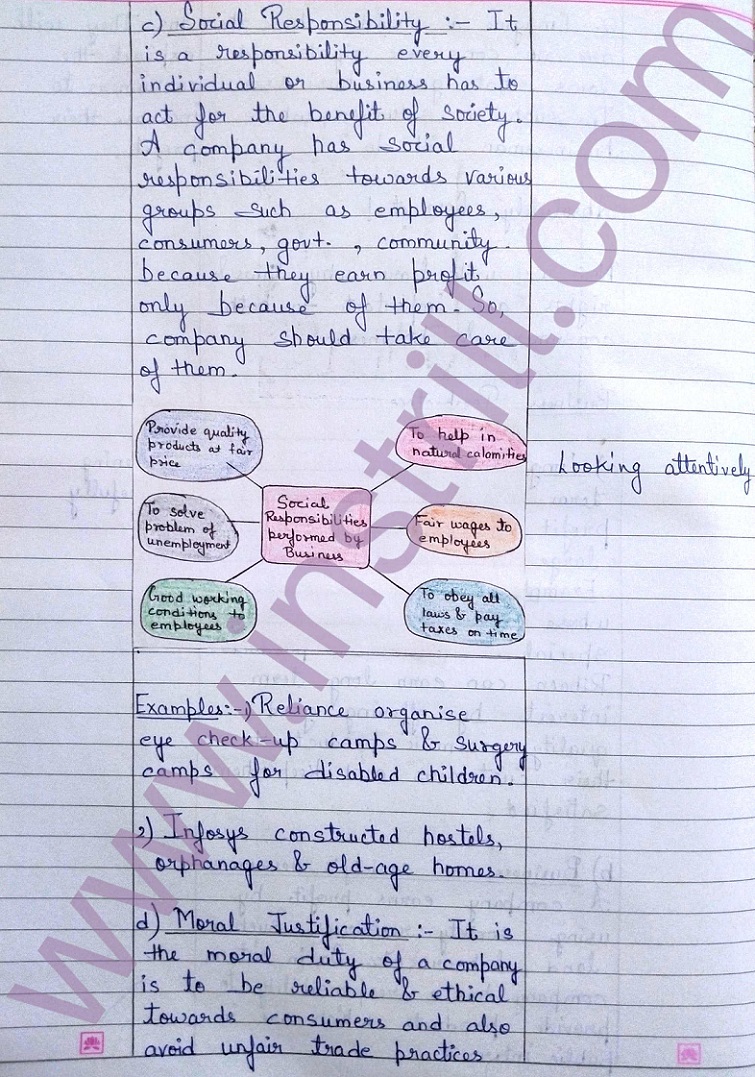 c) Social Responsibility :- It
is a responsibility every
individual or business has to
act for the benefit of society.
A company has social
responsibilities towards various
groups such as employees,
consumers, govt. , community.
because they earn profit
only because of them. So,
company should take care
of them.
Provide quality
products at fair
price
To help in
natural calamities
Looking attentively
To solve
problem of
unemployment
Social
Responsibilities
performed by
Business
Fair wages to
employees
Good working
conditions to
employees
To obey all
laws & pay
taxes on time
Examples:-1) Reliance organise
eye check-up camps & surgery
camps for disabled children.
2) Infosys constructed hostels,
orphanages & old-age homes.
d) Moral Justification :- It is
the moral duty of a company
is to be reliable & ethical
towards consumers and also
avoid unfair trade practices
www.instrill.com